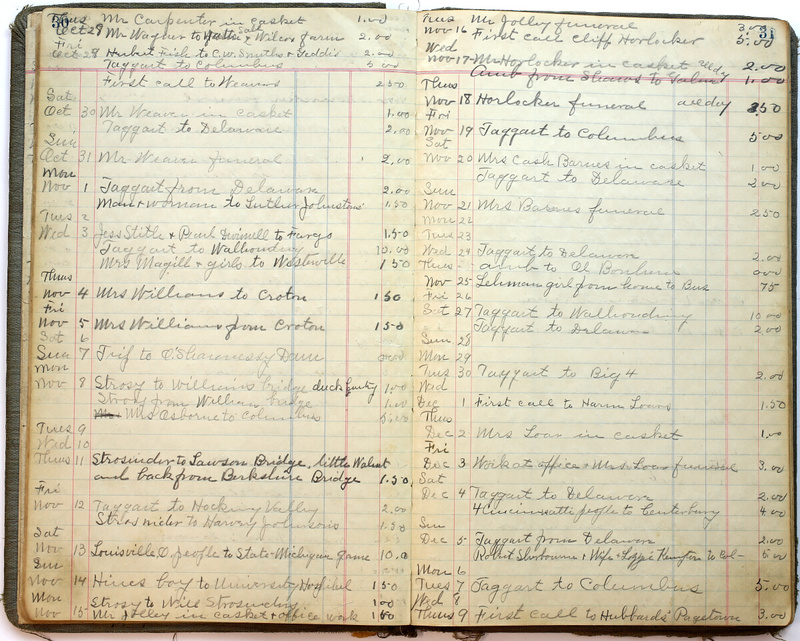 30
Thurs Mr Carpenter in casket 1.00
Oct 28 Mr Wagner to Wilcox farm 2.00
Fri
Oct 28 Hubert Fish to C.W. Smiths & Geddis 2.00
Taggart to Columbus 5.00
First call to Weavers 2.50
Sat
Oct 30 Mr Weaver in casket 1.00
Taggart to Delaware 2.00
Sun
Oct 31 Mr Weaver funeral 2.00
Mon
Nov 1 Taggart from Delaware 2.00
Man & woman to Luther Johnstons 1.50
Tues 2
Wed 3 Jess Stith & Pearl Dwinell to Fargo 1.50
Taggart to Walhonding 10.00
Mrs Magill & girls to Westerville 1.50
Thus
Nov 4 Mrs Williams to Croton 1.50
Fri
Nov 5 Mrs Williams from Croton 1.50
Sat 6
Sun 7 Trip to O'Shaunessy Dam 0.00
Mon
Nov 8 Strosy to Williams bridge duck hunting 1.00
Strosy from William bridge 1.00
Mrs Osborne to Columbus 5.00
Tues 9
Wed 10
Thurs 11 Strosnider to Lawson Bridge, little Walnut
and back from Berkshire Bridge 1.50
Fri
Nov 12 Taggart to Hocking Valley 2.00
Strosnider to Harvey Johnsons 1.50
Sat
Nov 13 Louisville, O. people to State-Michigan game 10.00
Sun
Nov 14 Hines boy to University Hospital 1.50
Mon
Nov 15 Strosy to Will Strosniders 1.00
Mr Jolley in casket & office work 1.00
31
Tues Mr Jolley funeral 3.00
Nov 16 First call Cliff Horlocker 5.00
Wed
Nov 17 Mr Horlocker in casket all dy 2.00
Amb from Shaws to Galena 1.00
Thus
Nov 18 Horlocker funeral all dy 3.50
Fri
Nov 19 Taggart to Columbus 5.00
Sat
Nov 20 Mrs Cash Barnes in casket 1.00
Taggart to Delaware 2.00
Sun
Nov 21 Mrs Barnes funeral 2.50
Mon 22
Tues 23
Wed 24 Taggart to Delawon 2.00
Thus Amb to Al Bonham 0.00
Nov 25 Lehman girl from home to Bus 75
Fri 26
Sat 27 Taggart to Walhonding 10.00
Taggart to Delawon 2.00
Sun 28
Mon 29
Tues 30 Taggart to Big 4 2.00
Wed
Dec 1 First call to Harm Loars 1.50
Thus
Dec 2 Mrs Loar in casket 1.00
Fri
Dec 3 Work at office & Mrs Loar funeral 3.00
Sat
Dec 4 Taggart to Delawon 2.00
4 Cincinnatti people to Centerburg 4.00
Sun
Dec 5 Taggart from Delawon 2.00
Robert Sherbourne & Wife & Lizzie to Col- 5.00
Mon 6
Tues 7 Taggart to Columbus 5.00
Wed 8
Thurs 9 First call to Hubbards' Pagetown 3.00